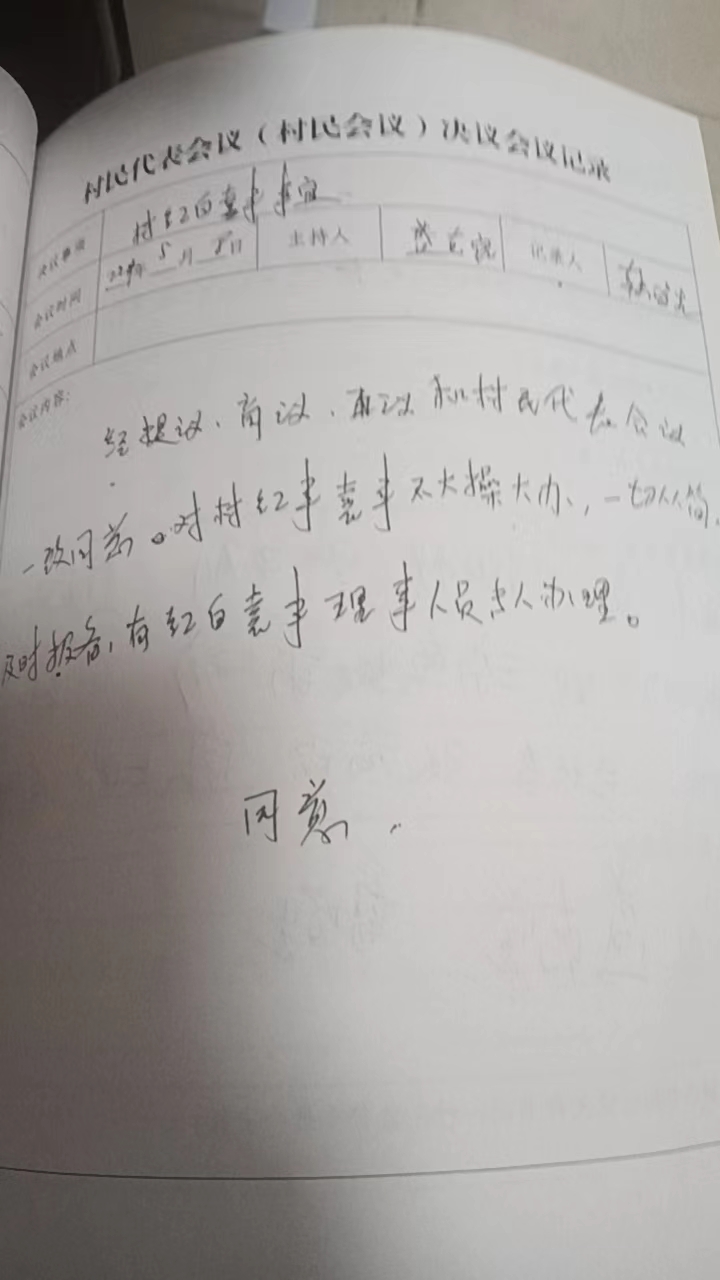 村民代表会议（村民会议）决议会议记录
决议事项 村红白喜事事宜
会议时间 5月8日 主持人 记录人
会议地点
会议内容：
经提议、商议、再议和村民代表会议
一致同意。对村红事喜事不大操大办，一切从简，
及时报备，有红白喜事理事人员专人办理。
同意.